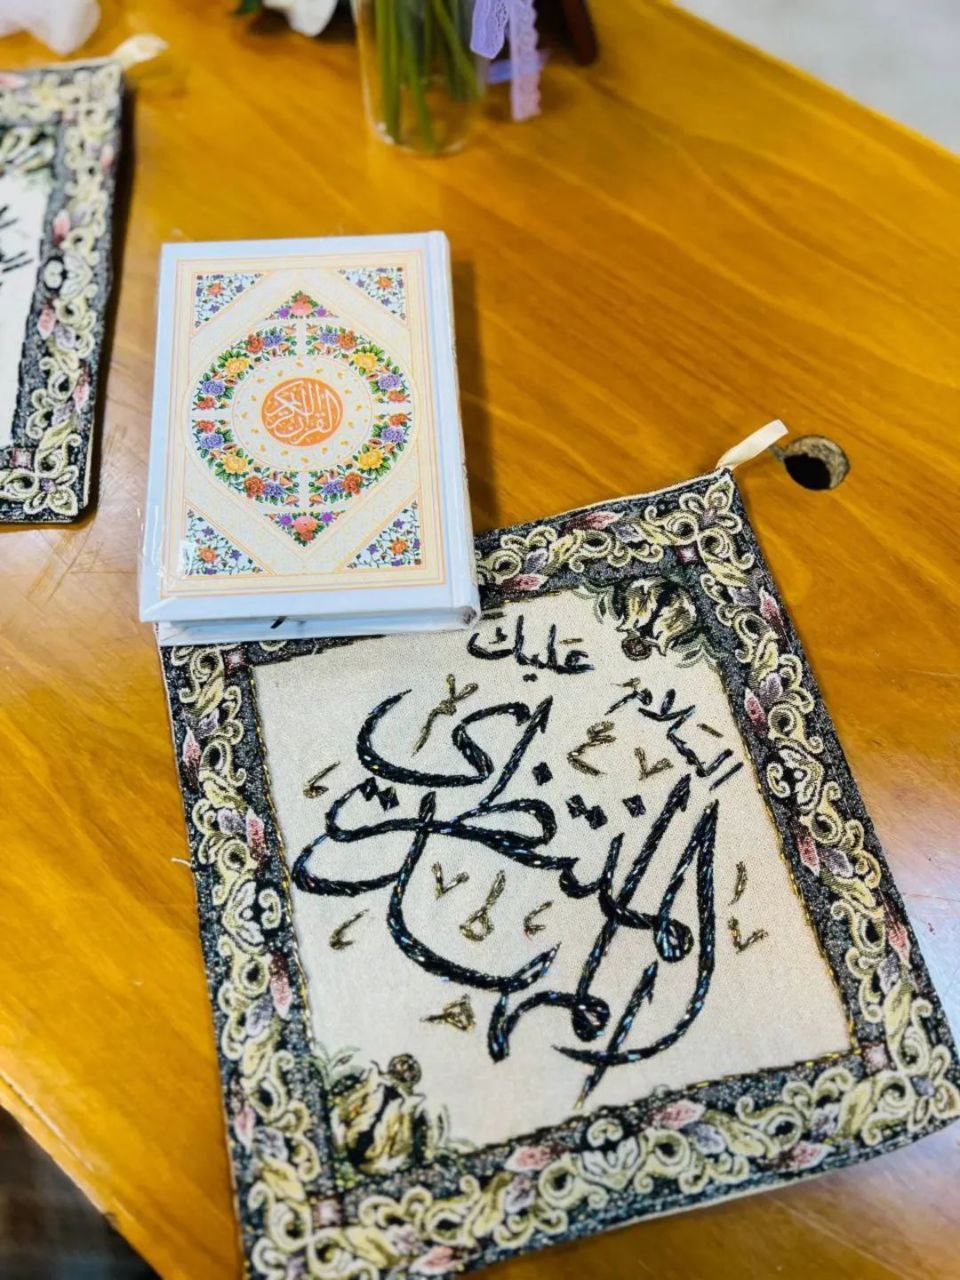 القرآن الكريم
السَلام عَليكَ
المهدي المنتظر